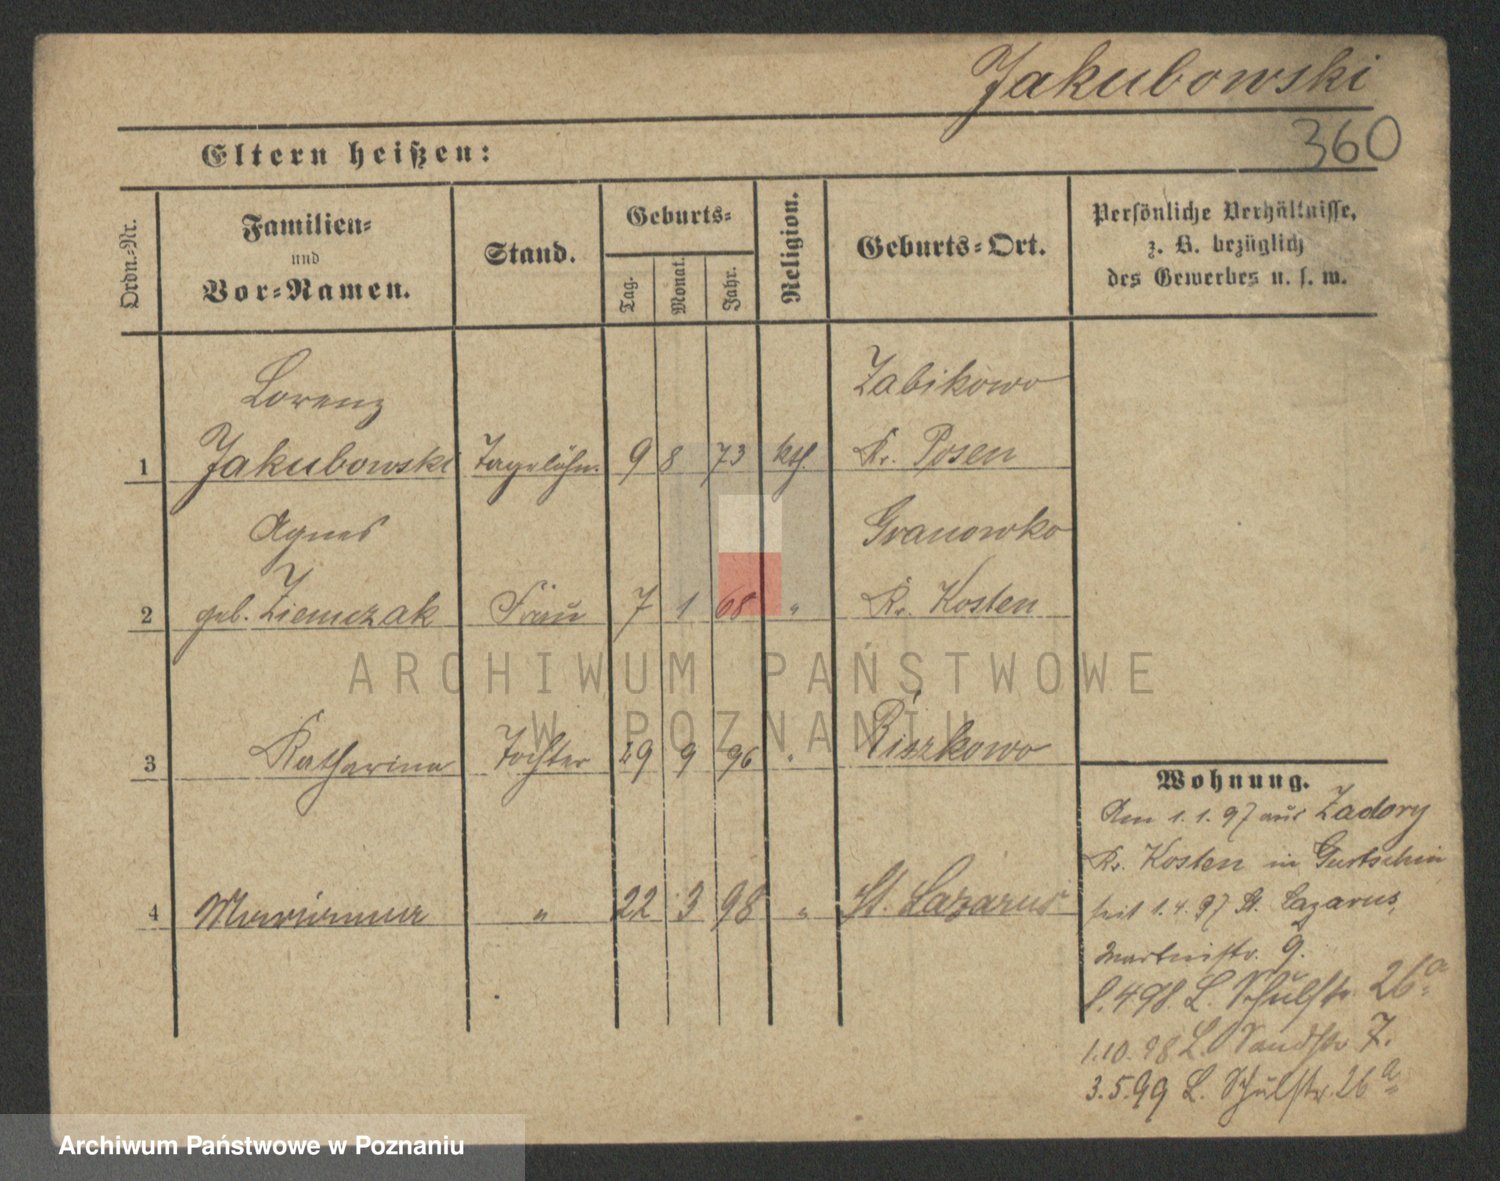 Jakubowski
360
Eltern heißen:
Ordn.-Nr.
Familien-
und
Vor-Namen.
Stand.
Geburts-
Tag.
Monat.
Jahr.
Religion.
Geburts-Ort.
Persönliche Verhältnisse,
z. B. bezüglich
des Gewerbes u. s. w.
Lorenz Zabikowo
1 Jakubowski Tagelöhn. 9 8 73 kth. Kr. Posen
Agnes Granowko
2 geb. Ziemczak Frau 7 1 68 " Kr. Kosten
3 Katharina Tochter 29 9 96 " Piszkowo
4 Marianna " 22 3 98 " St. Lazarus
Wohnung.
Am 1.1.97 aus Zadory
Kr. Kosten in Gurtschin
seit 1.4.97 St. Lazarus,
Martinstr. 9.
1.4.98. L. Schulstr. 26a.
1.10.98 L. Sandstr 7.
3.5.99 L. Schulstr. 26a
ARCHIWUM PAŃSTWOWE
W POZNANIU
Archiwum Państwowe w Poznaniu